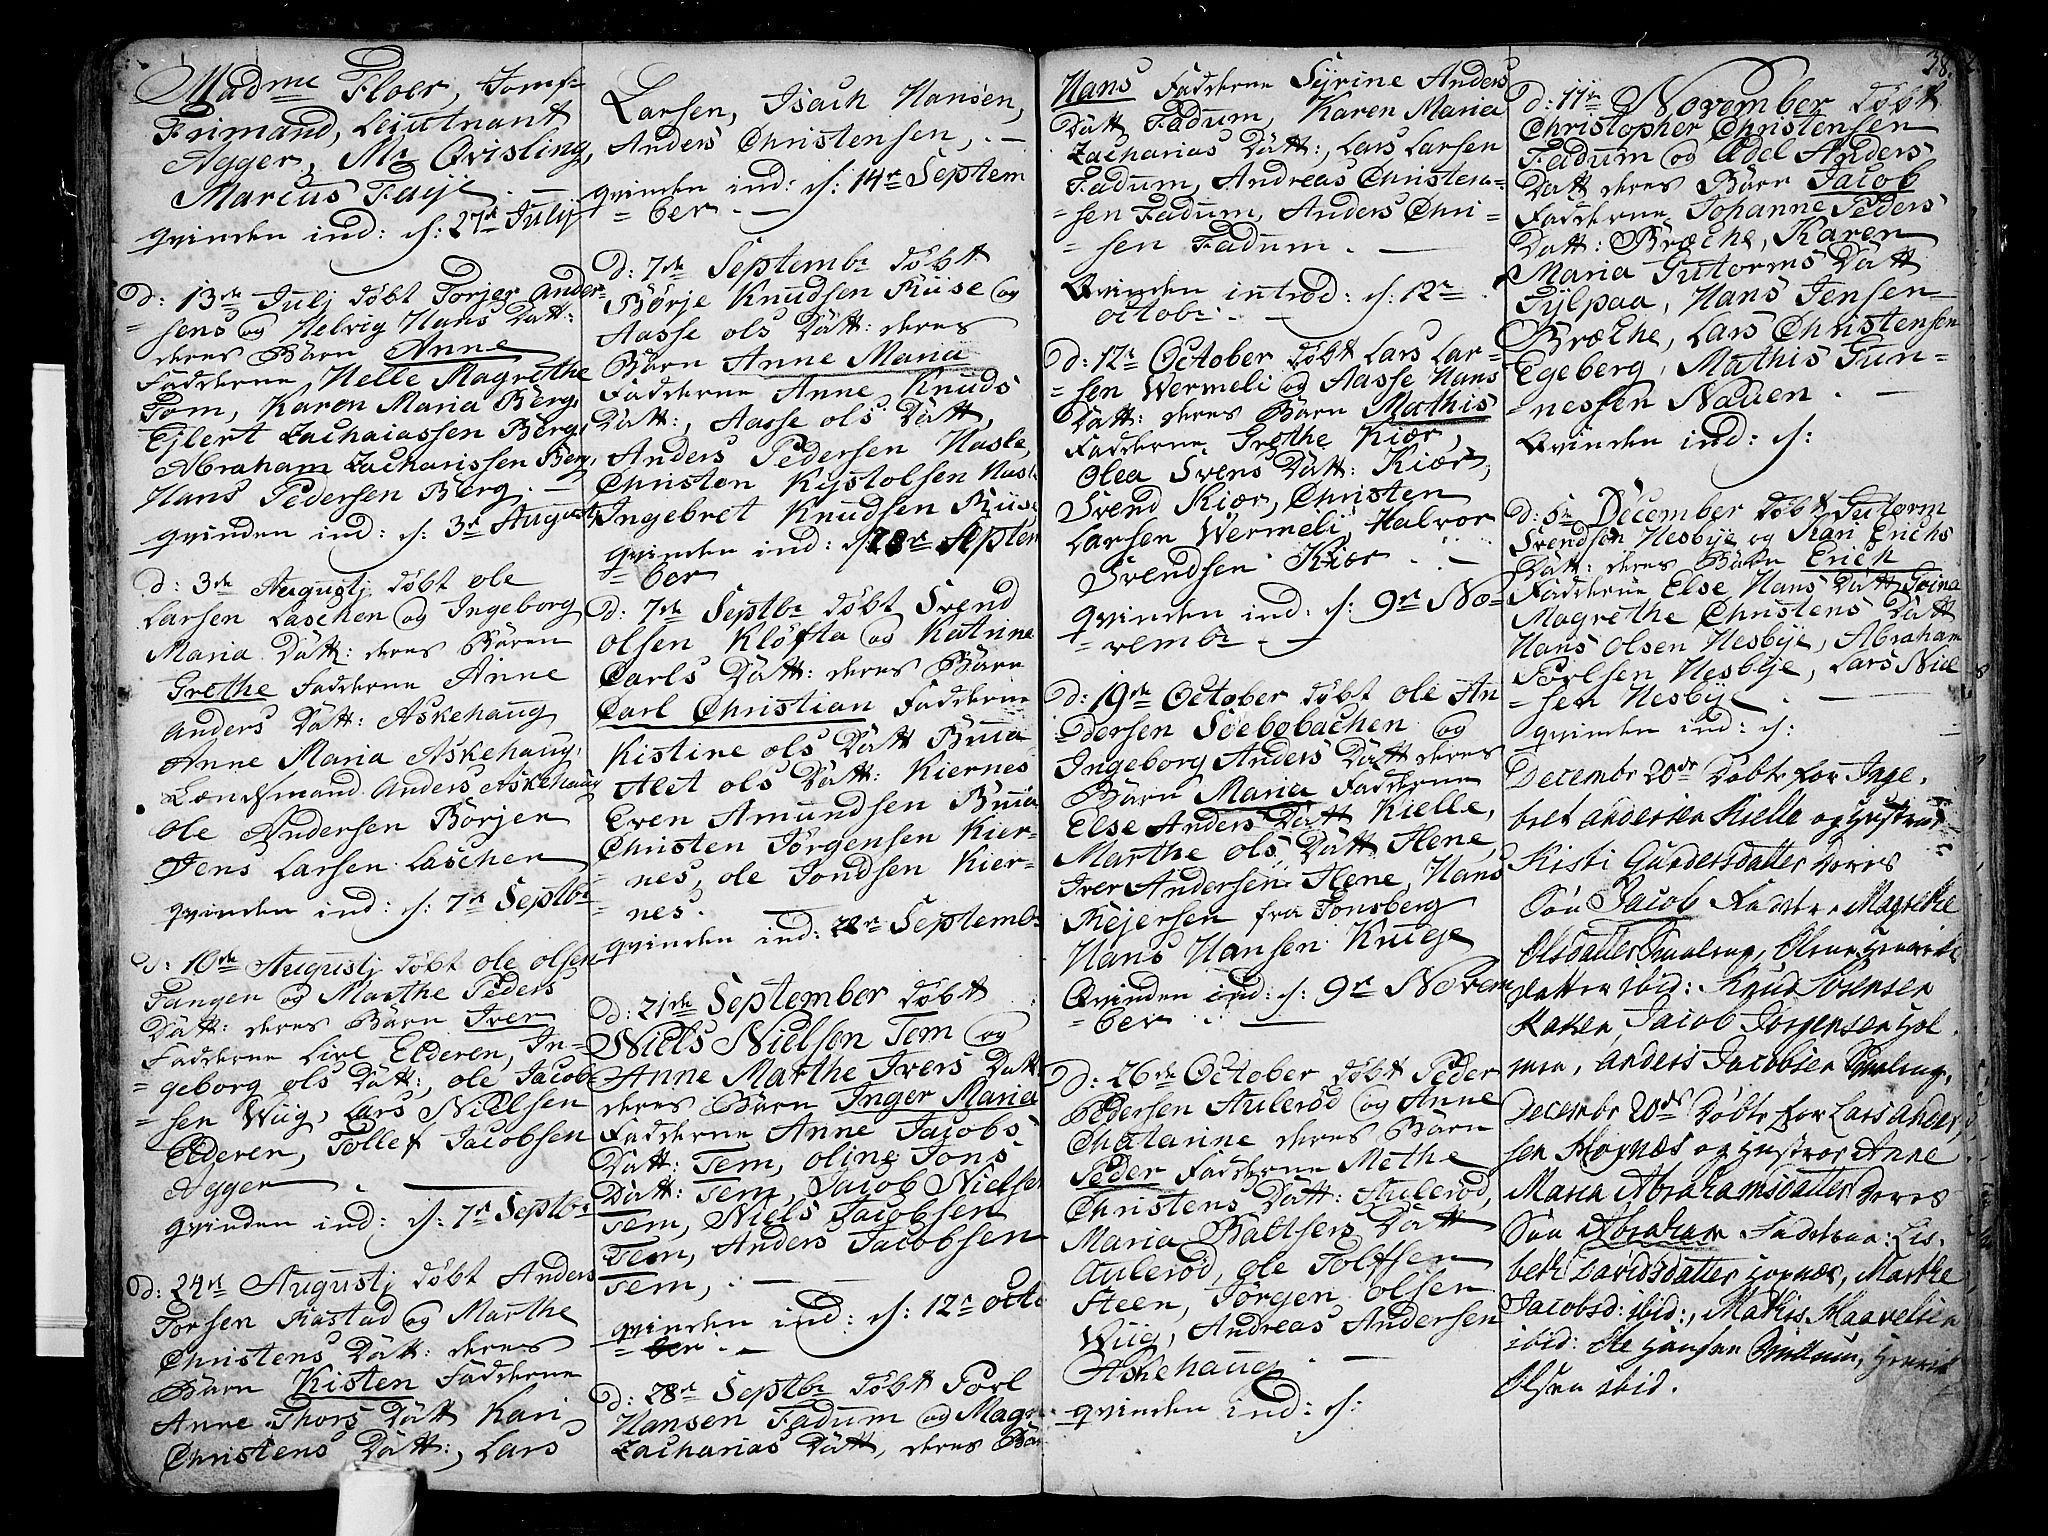 Madme Floer, Jomf:
Frimand, Lieutnant
Agger, Mr Qvisling,
Marcus Faye. —
qvinden ind: d: 27de Julij
D: 13de Julj döbt Torjer Ander-
-sens og Helvig Hans Datt:
deres Barn Anne
Fadderne, Helle Magrethe
Tom, Karen Maria Berg,
Ejlert Zachaiassen Berg,
Abraham Zacharissen Berg,
Hans Pedersen Berg. —
qvinden ind: d: 3de Augustj
D: 3de Augustj döbt ole
Larsen Laschen og Ingeborg
Maria Datt: deres Barn
Grethe Fadderne Anne
Anders Datt: Askehaug
Anne Maria Askehaug,
Lændsmand Anders Askehaug
Ole Andersen Börjer
Jens Larsen Laschen
qvinden ind: d: 7de Septbr
D: 10de Augustj döbt ole olsen
Tangen og Marthe Peders
Datt: deres Barn Iver
Fadderne Live Elderen, In-
-geborg ols Datt:, ole Jacob-
-sen Wiig, Lars Nielsen
Elderen, Tollef Jacobsen
Agger. —
qvinden ind: d: 7de Septbr
D: 24de Augustj döbt Anders
Torsen Rastad og Marthe
Christens Datt: deres
Barn Kisten Fadderne
Anne Thors Datt Kari
Christens Datt:, Lars
Larsen, Isach Hansen,
Anders Christensen, . —
qvinden ind: d: 14de Septem
-ber. —
D: 7de Septembr döbt
Börje Knudsen Ruse og
Aasse ols Datt: deres
Barn Anne Maria
Fadderne Anne Knuds
Datt:, Aasse ols Datt,
Anders Pedersen Hasle,
Christen Kystolsen Hasle
Ingebret Knudsen Ruse
qvinden ind: d: 28de Septem
-ber
D: 7de Septbr döbt Svend
olsen Klöfta og Katrine
Carls Datt: deres Barn
Carl Christian Fadderne
Kistine ols Datt Buua
Alet ols Datt: Kiernes
Even Amundsen Buua
Christen Jörgensen Kier-
-nes, ole Jondsen Kier-
-nes. —
qvinden ind: 28de Septembr
D: 21de September döbt
Niels Nielsen Tem og
Anne Marthe Ivers Datt
deres Barn Inger Maria
Fadderne Anne Jacobs
Datt: Tem, oline Jons
Datt: Tem, Jacob Nielsen
Tem, Niels Jacobsen
Tem, Anders Jacobsen
Tem, . —
qvinden ind: d: 12te octo
-ber. —
D: 28de Septbr döbt Porl
Hansen Fadum og Magr
Zacharias Datt, deres Bar
Hans Fadderne Syrine Anders
Datt Fadum, Karen Maria
Zacharias Datt:, Lars Larsen
Fadum, Andreas Christen-
-sen Fadum, Anders Chri-
-sen Fadum. —
Qvinden introd: d: 12te
octobr. —
D: 12te October döbt Lars Lar-
-sen Wermeli og Aasse Hans
Datt: deres Barn Mathis
Fadderne Grethe Kiær,
Olea Svens Datt: Kiær,
Svend Kiær, Christen
Larsen Wermeli, Halvor
Svendsen Kiær. —
qvinden ind: d: 9de No-
-vembr. —
D: 19de October döbt ole An-
-dersen Soebobachen og
Ingeborg Anders Datt deres
Barn Maria Fadderne
Else Anders Datt Kielle,
Marthe ols Datt: Hene,
Iver Andersen Hene, Hans
Rejersen fra Tonsberg
Hans Hansen Kruge
Qvinden ind: d: 9de Novem
-ber. —
D: 26de October döbt Peder
Pedersen Aulerød og Anne
Chatarine deres Barn
Peder Fadderne Methe
Christens Datt: Aulerød,
Maria Baltsers Datt
Aulerød, ole Tolfsen
Steen, Jörgen olsen
Wiig, Andreas Andersen
Askehaug. —
qvinden ind: d:
38.
D: 11te November döbt
Christopher Christensen
Fadum og Edel Anders
Datt deres Barn Jacob
Fadderne Johanne Peders
Datt: Bræche, Karen
Maria Gutorms Datt
Fylpaa, Hans Jensen
Bræche, Lars Christensen
Egeberg, Mathis Gun-
-nessen Nauen. —
Qvinden ind: d:
D: 5te December döbt Gutorm
Svendsen Nesbye og Kari Erichs
Datt: deres Barn Erich
Fadderne Else Hans Datt
Magrethe Christens Datt
Hans Olsen Nesbye, Abraham
Porlsen Nesbye, Lars Niel
-sen Nesbye. —
qvinden ind: d:
Decembr 20de Döbt for Inge-
bret andersen Kielle og hustrue
Kisti Gundersdatter deres
Søn Jacob Faddere Magrethe
Olsdatter
datter ibid: Knud Sørensen
Jacob Jörgensen Hol-
men, anders Jacobsen
Decembr 20de Döbt for Lars ander-
sen og hustroe Anne
Maria Abrahamsdatter deres
Søn Abraham Faddere: Lis-
beth Davidsdatter Marthe
Jacobsd: ibid:, Mathis
ibid: Ole Hansen
Olsen ibid.